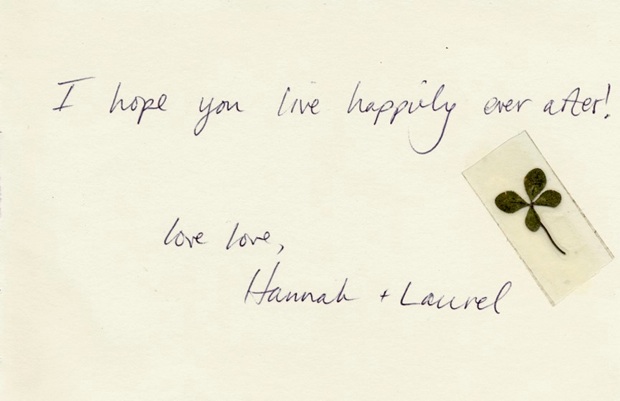 I hope you live happily ever after!
love love,
Hannah + Laurel